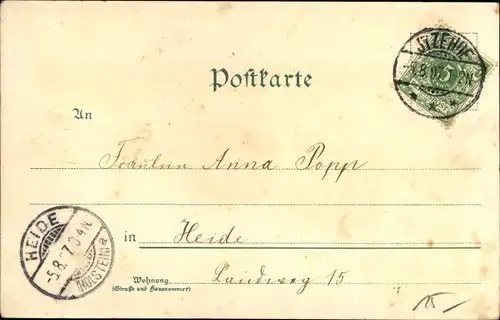 ITZEHOE
5
Postkarte
An
Fräulein Anna Popp
HEIDE
in Heide
-5.8.
(HOLSTEIN) a
Wohnung
(Straße und Hausnummer)
Landweg 15
15